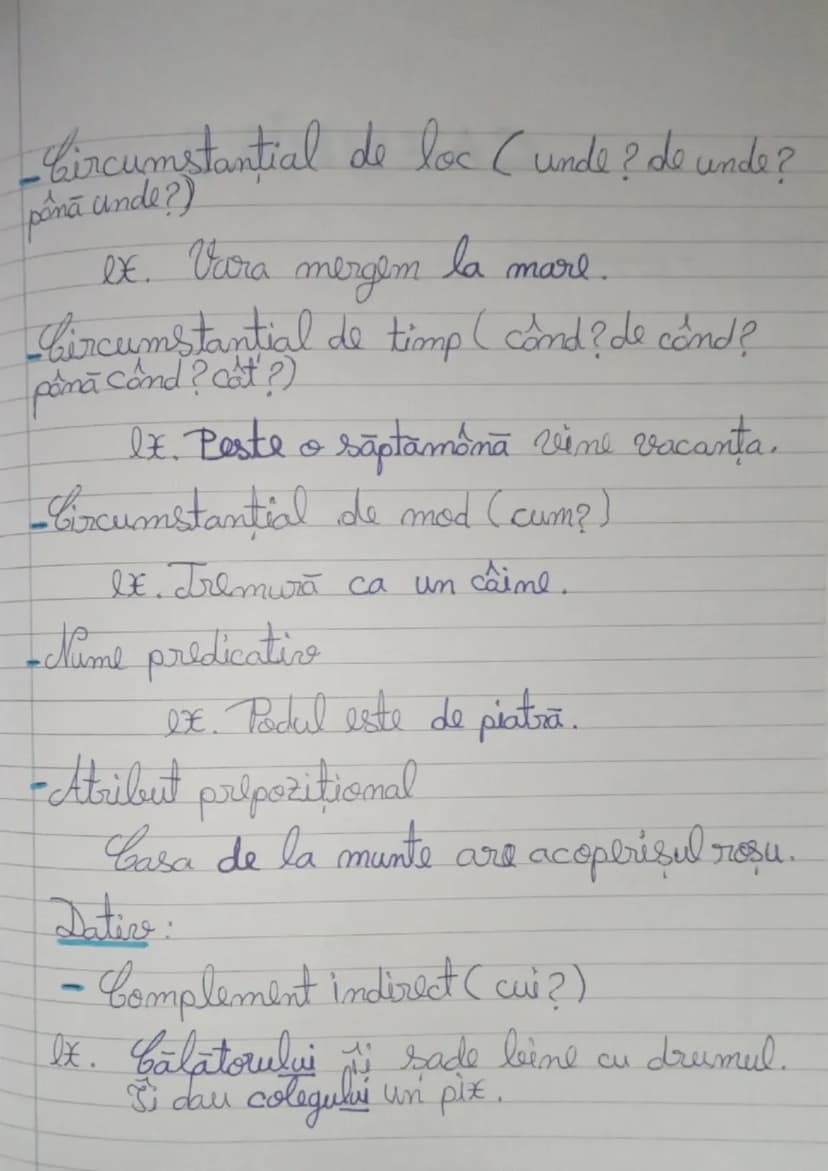 - Circumstanțial de loc ( unde? de unde?
până unde?)
ex. Vara mergem la mare.
- Circumstanțial de timp ( când? de când?
până când? cât?)
ex. Peste o săptămână vine vacanța.
- Circumstanțial de mod (cum?)
ex. Tremură ca un câine.
- Nume predicativ
ex. Podul este de piatră.
- Atribut prepozițional
Casa de la munte are acoperișul roșu.
Dativ:
- Complement indirect ( cui?)
ex. Călătorului îi șade bine cu drumul.
Îi dau colegului un pix.